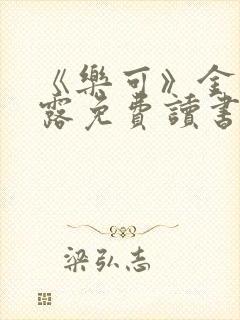 《樂可》金
露免費讀書
梁弘志